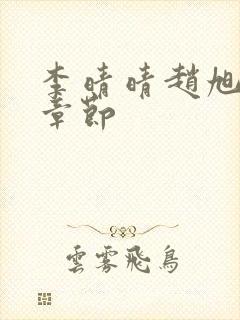 李晴晴趙旭
章節
雲霧飛鳥